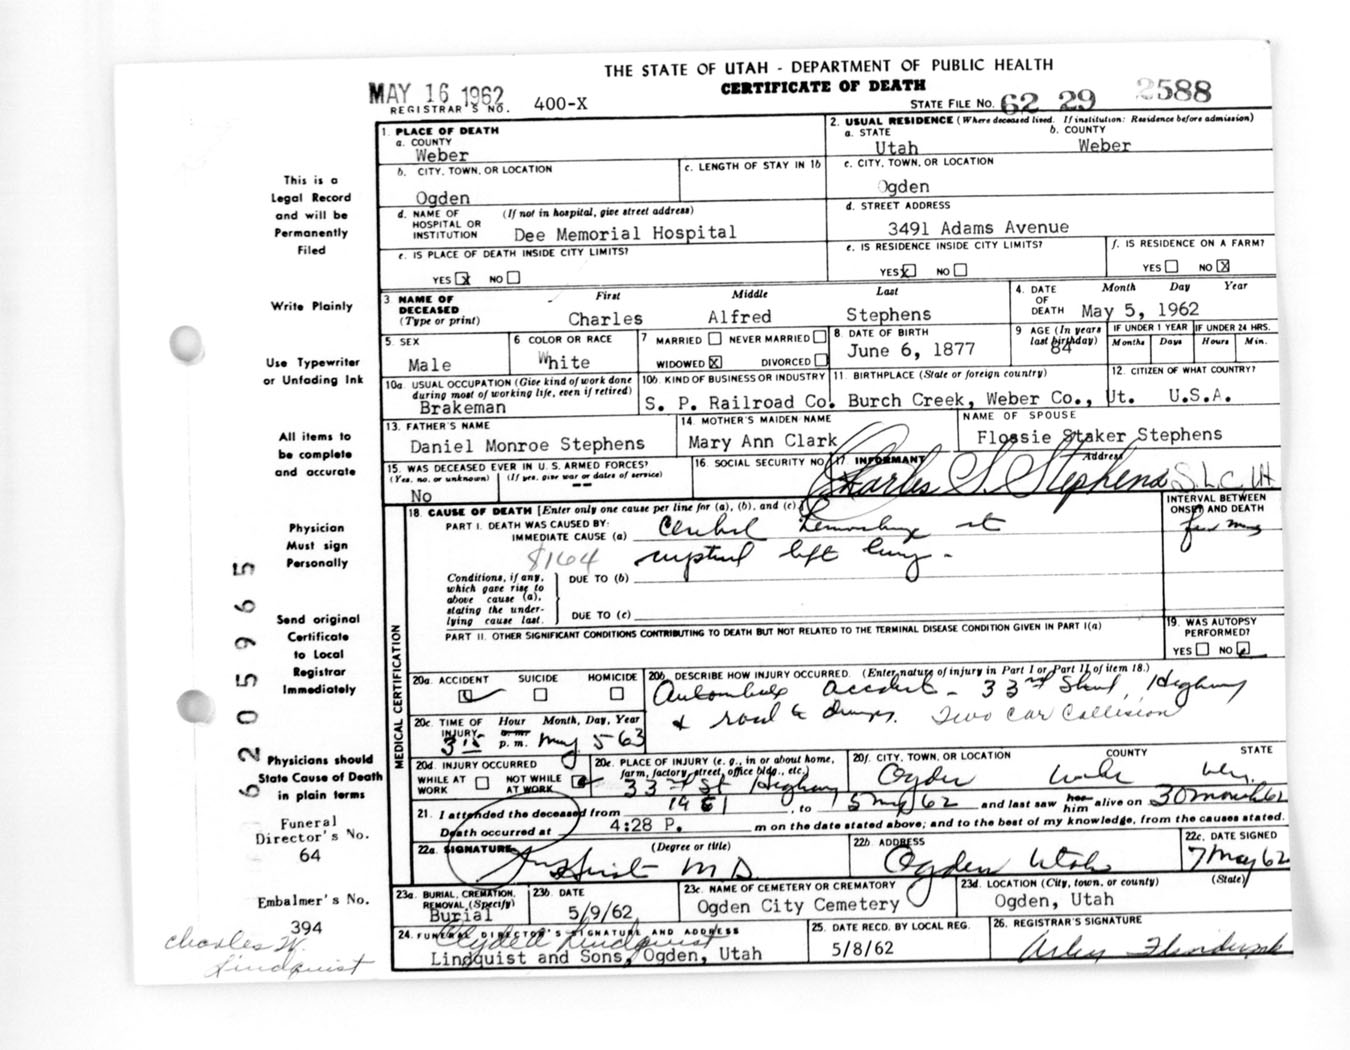 THE STATE OF UTAH - DEPARTMENT OF PUBLIC HEALTH
CERTIFICATE OF DEATH
MAY 16 1962
REGISTRAR'S NO. 400-X
STATE FILE NO. 62 29 2588
1. PLACE OF DEATH
a. COUNTY
Weber
2. USUAL RESIDENCE (Where deceased lived. If institution: Residence before admission)
a. STATE b. COUNTY
Utah Weber
b. CITY, TOWN, OR LOCATION
Ogden
c. LENGTH OF STAY IN 1b
c. CITY, TOWN, OR LOCATION
Ogden
d. NAME OF (If not in hospital, give street address)
HOSPITAL OR
INSTITUTION Dee Memorial Hospital
d. STREET ADDRESS
3491 Adams Avenue
e. IS PLACE OF DEATH INSIDE CITY LIMITS?
YES x NO
e. IS RESIDENCE INSIDE CITY LIMITS?
YES x NO
f. IS RESIDENCE ON A FARM?
YES NO x
3 NAME OF DECEASED (Type or print)
First Middle Last
Charles Alfred Stephens
4. DATE OF DEATH
Month Day Year
May 5, 1962
5. SEX
Male
6 COLOR OR RACE
White
7 MARRIED NEVER MARRIED
WIDOWED x DIVORCED
8 DATE OF BIRTH
June 6, 1877
9 AGE (In years last birthday)
84
IF UNDER 1 YEAR IF UNDER 24 HRS.
Months Days Hours Min.
10a. USUAL OCCUPATION (Give kind of work done
during most of working life, even if retired)
Brakeman
10b. KIND OF BUSINESS OR INDUSTRY
S. P. Railroad Co.
11. BIRTHPLACE (State or foreign country)
Burch Creek, Weber Co., Ut.
12. CITIZEN OF WHAT COUNTRY?
U.S.A.
13. FATHER'S NAME
Daniel Monroe Stephens
14. MOTHER'S MAIDEN NAME
Mary Ann Clark
NAME OF SPOUSE
Flossie Staker Stephens
15. WAS DECEASED EVER IN U. S. ARMED FORCES?
(Yes, no, or unknown) (If yes, give war or dates of service)
No --
16. SOCIAL SECURITY NO.
17. INFORMANT Address
Charles S. Stephens S.L.C. Ut
18. CAUSE OF DEATH [Enter only one cause per line for (a), (b), and (c).]
INTERVAL BETWEEN
ONSET AND DEATH
PART I. DEATH WAS CAUSED BY:
IMMEDIATE CAUSE (a)
left lung -
8164
Conditions, if any,
which gave rise to
above cause (a),
stating the under-
lying cause last.
DUE TO (b)
DUE TO (c)
PART II. OTHER SIGNIFICANT CONDITIONS CONTRIBUTING TO DEATH BUT NOT RELATED TO THE TERMINAL DISEASE CONDITION GIVEN IN PART I(a)
19. WAS AUTOPSY
PERFORMED?
YES NO
MEDICAL CERTIFICATION
20a. ACCIDENT SUICIDE HOMICIDE
20b. DESCRIBE HOW INJURY OCCURRED. (Enter nature of injury in Part I or Part II of item 18.)
Automobile accident - 33rd Street, Highway
& road to dumps. Two Car Collision
20c. TIME OF INJURY
Hour Month, Day, Year
a. m.
p. m.
3 15 May 5 63
20d. INJURY OCCURRED
WHILE AT WORK NOT WHILE AT WORK
20e. PLACE OF INJURY (e. g., in or about home,
farm, factory, street, office bldg., etc.)
33rd St Highway
20f. CITY, TOWN, OR LOCATION COUNTY STATE
Ogden
21. I attended the deceased from 1961, to 5 May 62 and last saw her him alive on 30 March 62
Death occurred at 4:28 P. m on the date stated above; and to the best of my knowledge, from the causes stated.
22a. SIGNATURE (Degree or title)
M D.
22b. ADDRESS
Ogden Utah
22c. DATE SIGNED
7 May 62
23a. BURIAL, CREMATION,
REMOVAL (Specify)
Burial
23b. DATE
5/9/62
23c. NAME OF CEMETERY OR CREMATORY
Ogden City Cemetery
23d. LOCATION (City, town, or county) (State)
Ogden, Utah
24. FUNERAL DIRECTOR'S SIGNATURE AND ADDRESS
Clyde A Lindquist
Lindquist and Sons, Ogden, Utah
25. DATE RECD. BY LOCAL REG.
5/8/62
26. REGISTRAR'S SIGNATURE
This is a
Legal Record
and will be
Permanently
Filed
Write Plainly
Use Typewriter
or Unfading Ink
All items to
be complete
and accurate
Physician
Must sign
Personally
Send original
Certificate
to Local
Registrar
Immediately
Physicians should
State Cause of Death
in plain terms
Funeral
Director's No.
64
Embalmer's No.
394
Charles W.
Lindquist
6205965